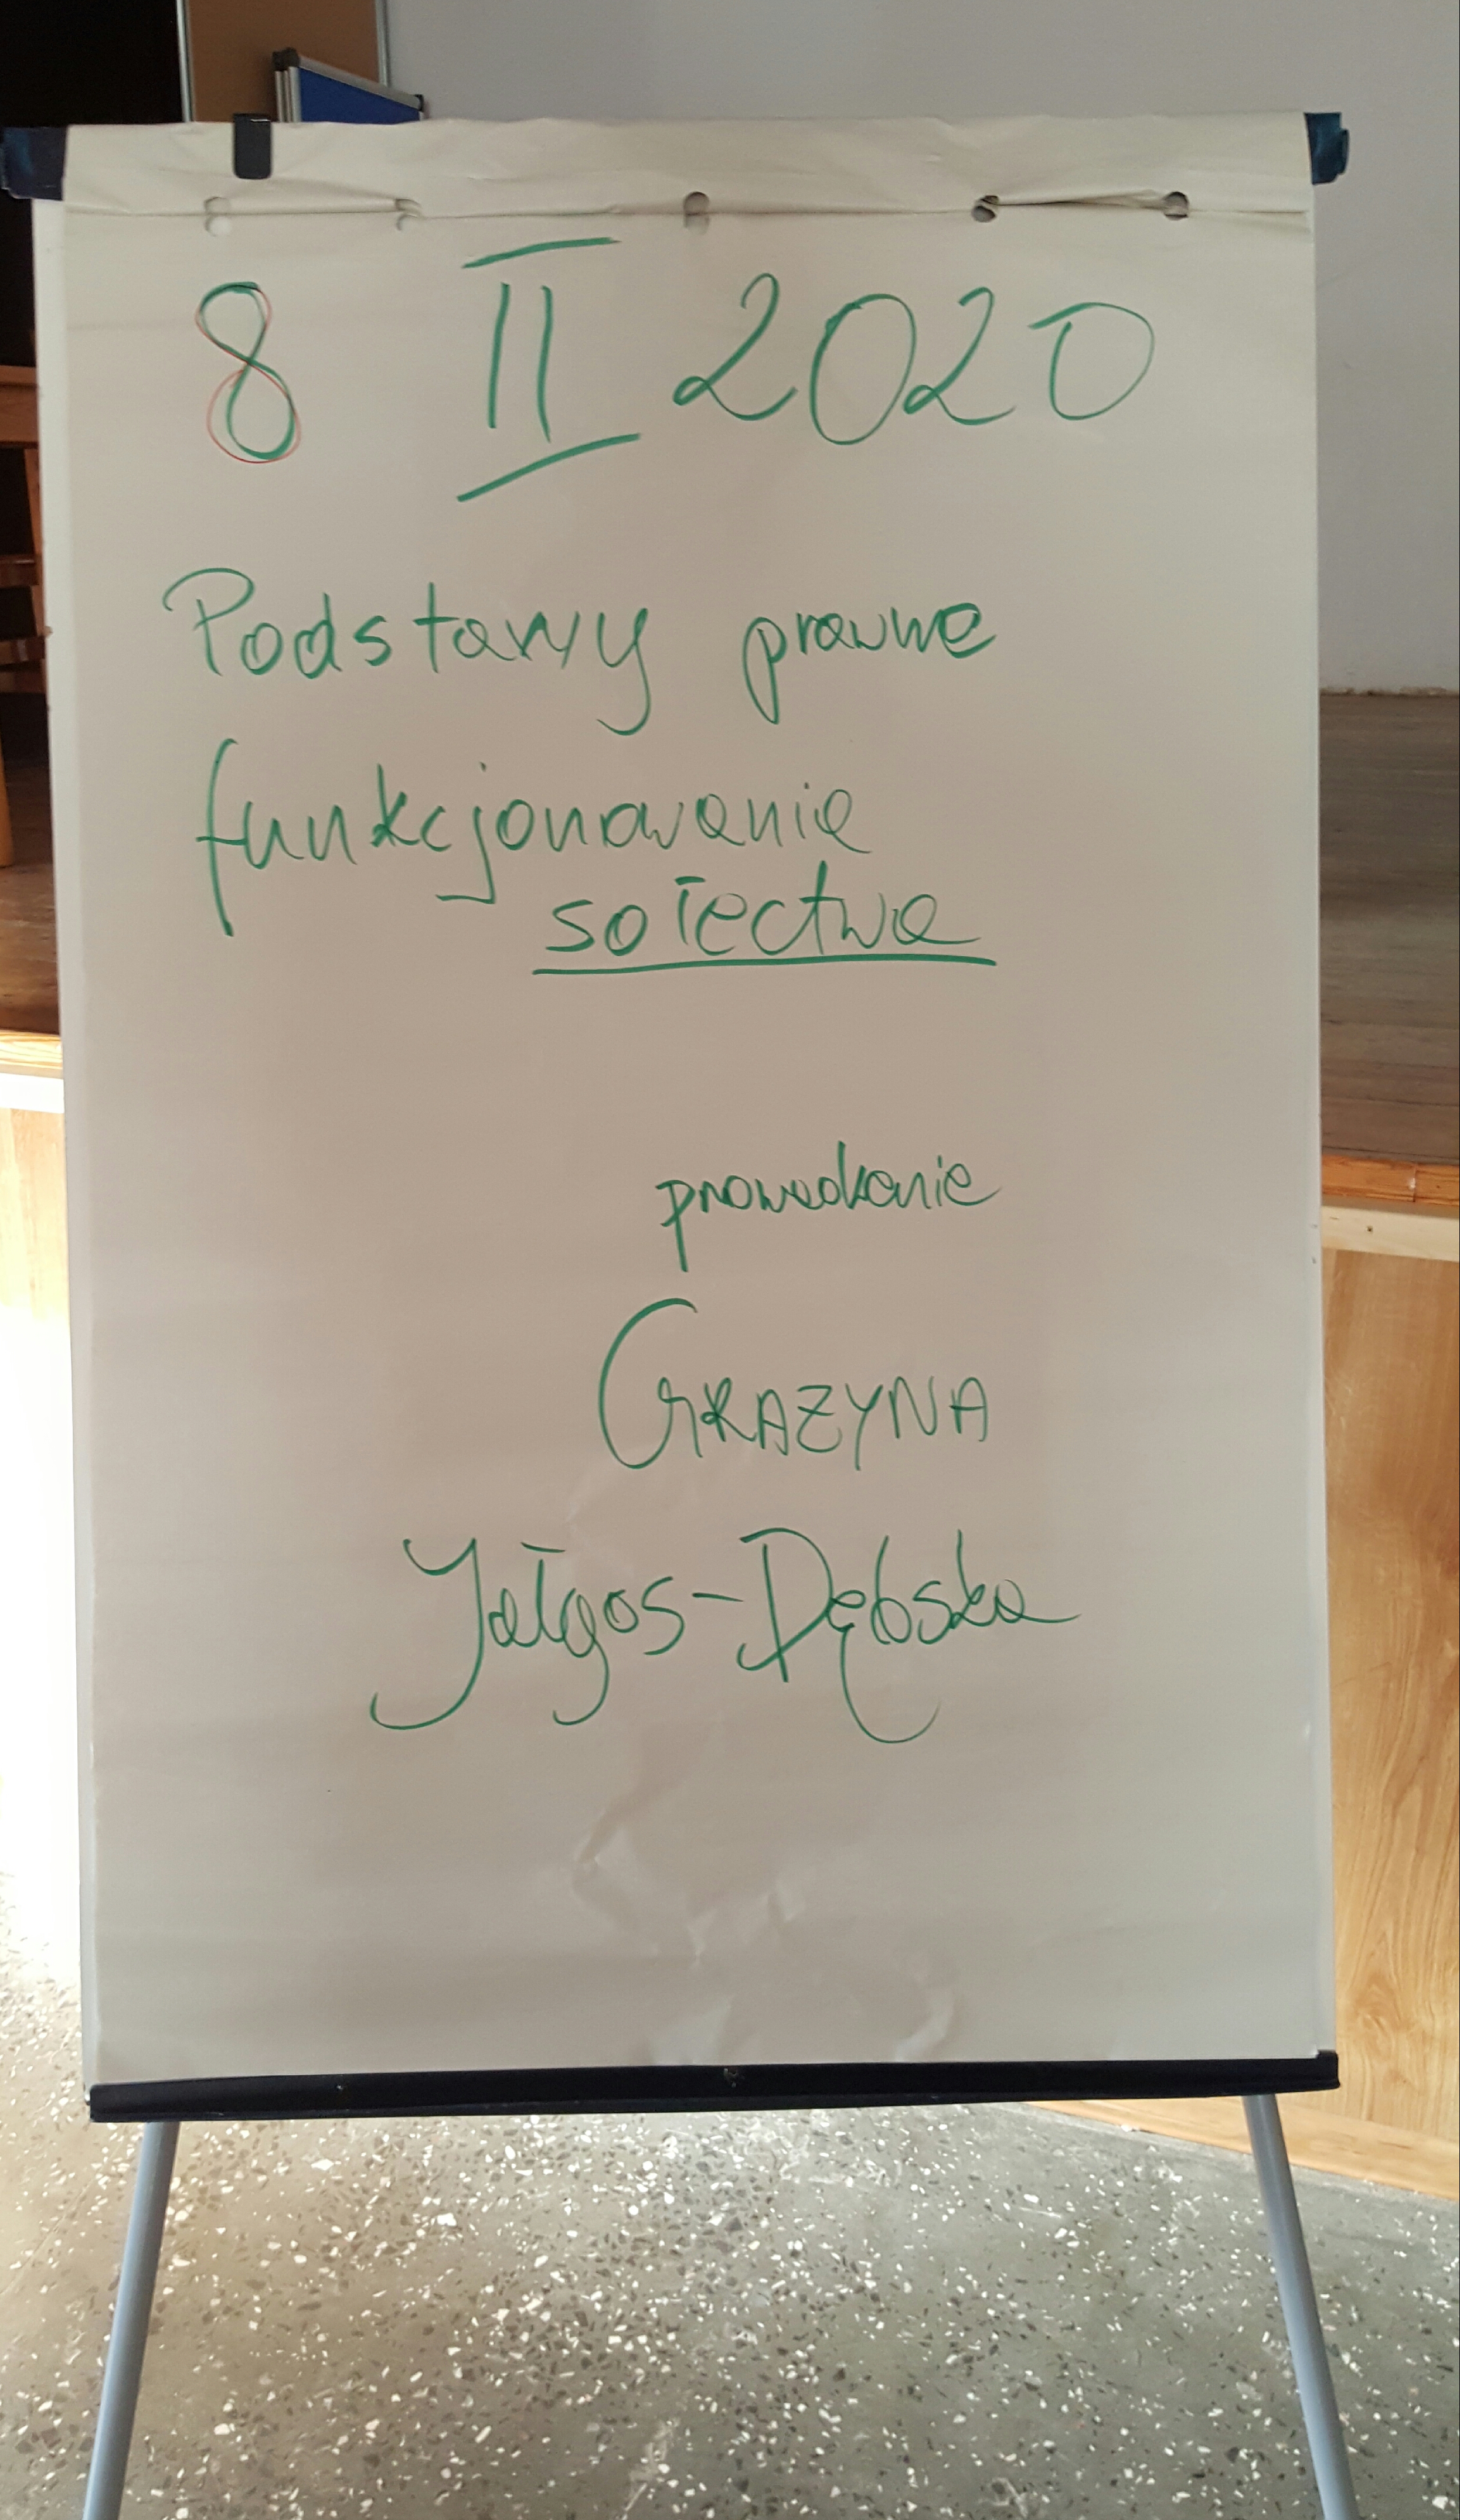 8 II 2020
Podstawy prawne
funkcjonowanie
sołectwa
prowadzenie
GRAŻYNA
Jałgos-Dębska